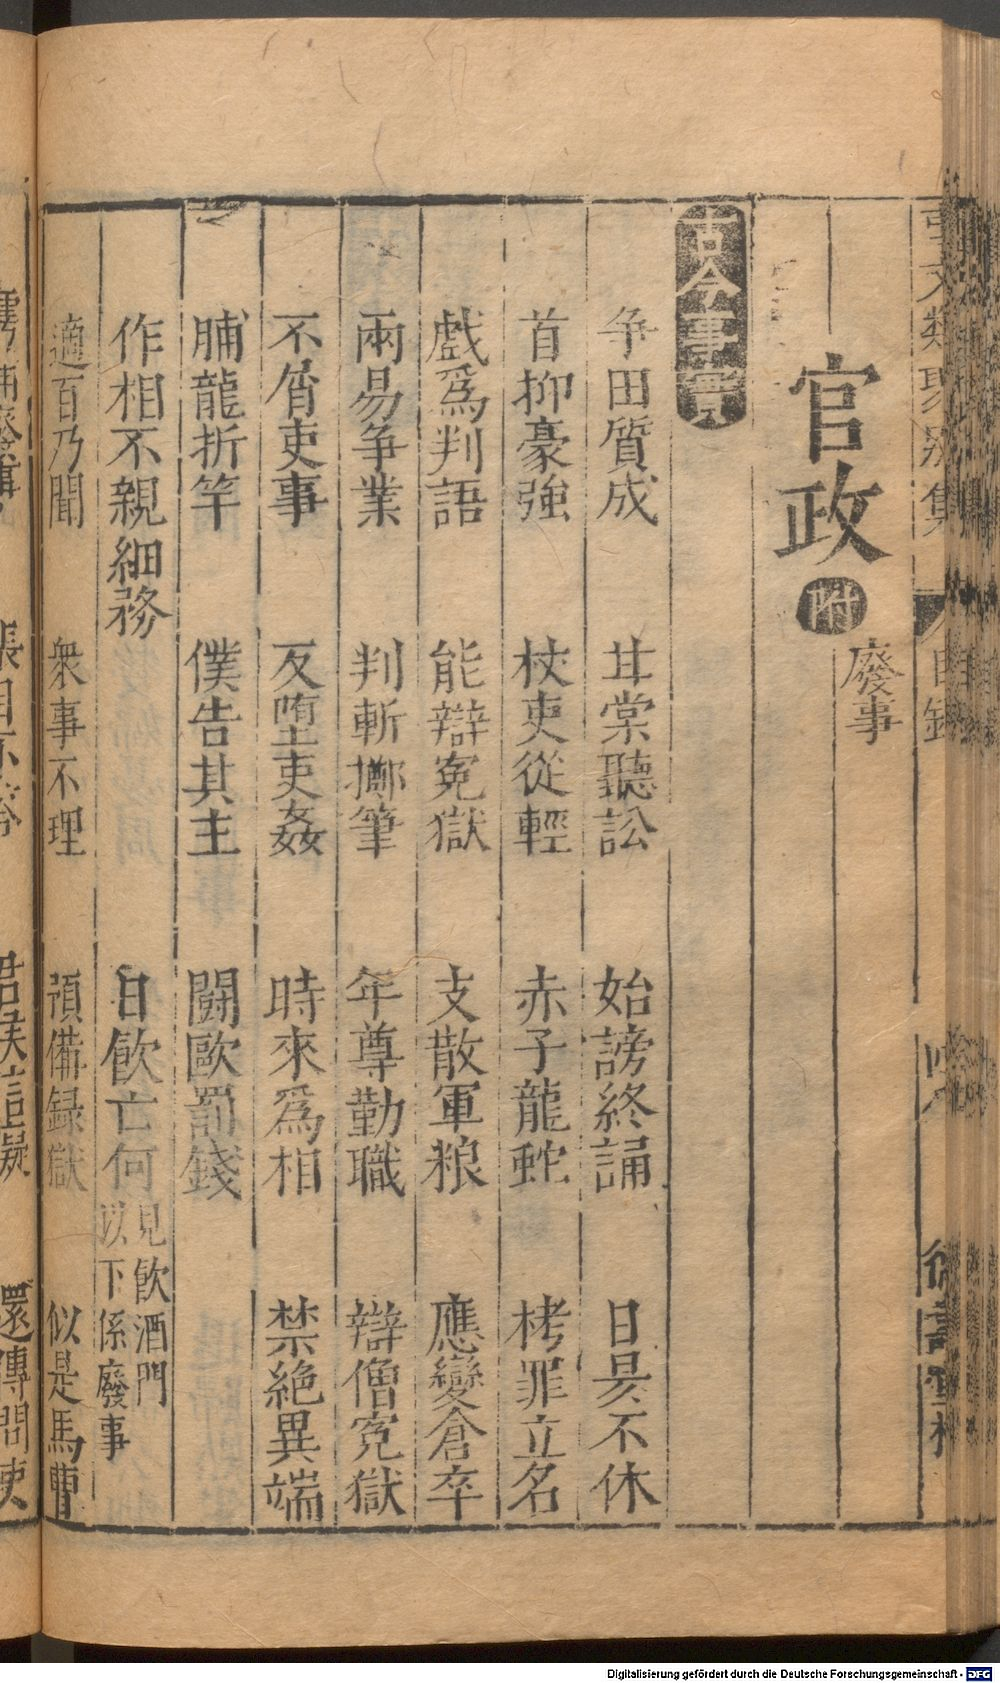 官政 附 廢事
古今事實
爭田質成 甘棠聽訟 始謗終誦 日昃不休
首抑豪強 杖吏從輕 赤子龍蛇 栲罪立名
戲爲判語 能辯冤獄 支散軍粮 應變倉卒
兩易爭業 判斬擲筆 年尊勤職 辯僧冤獄
不屑吏事 反墮吏姦 時來爲相 禁絶異端
脯龍折竿 僕告其主 鬪歐罰錢
作相不親細務 日飲亡何 見飲酒門以下係廢事
適百乃聞 衆事不理 預備録獄 似是馬曹
還傳問吏
Digitalisierung gefördert durch die Deutsche Forschungsgemeinschaft - DFG